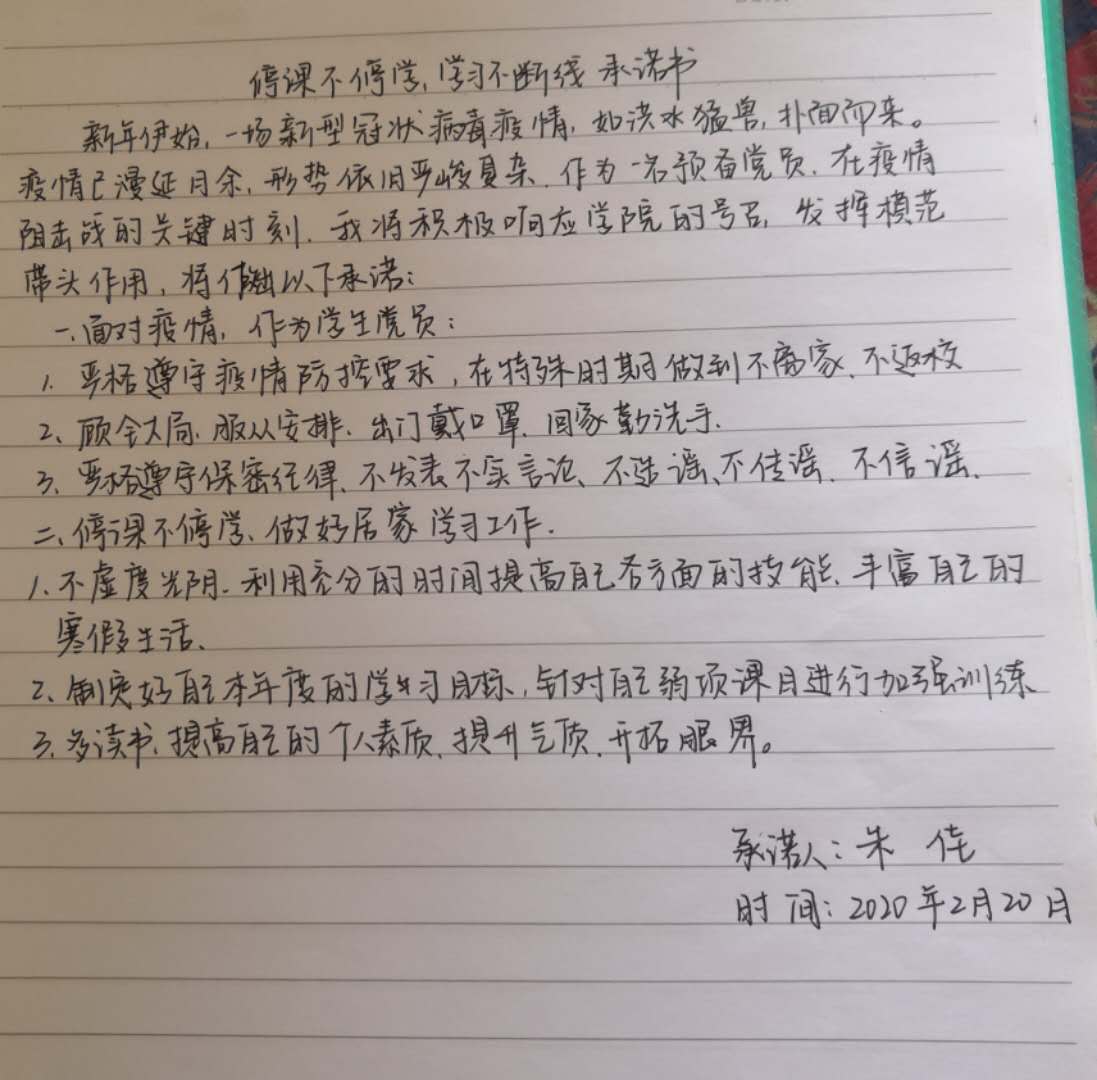 停课不停学,学习不断线 承诺书
新年伊始,一场新型冠状病毒疫情,如洪水猛兽,扑面而来。
疫情已漫延月余,形势依旧严峻复杂.作为一名预备党员.在疫情
阻击战的关键时刻.我将积极响应学院的号召,发挥模范
带头作用,将作出以下承诺:
一.面对疫情,作为学生党员:
1.严格遵守疫情防控要求,在特殊时期做到不离家、不返校
2、顾全大局、服从安排、出门戴口罩、回家勤洗手.
3、严格遵守保密纪律、不发表不实言论、不造谣、不传谣、不信谣.
二、停课不停学、做好居家学习工作.
1.不虚度光阴.利用充分的时间提高自己各方面的技能、丰富自己的
寒假生活.
2、制定好自己本年度的学生习目标,针对自己弱项课目进行加强训练
3.多读书、提高自己的个人素质、提升气质、开拓眼界。
承诺人:朱 佳
时 间:2020年2月20日